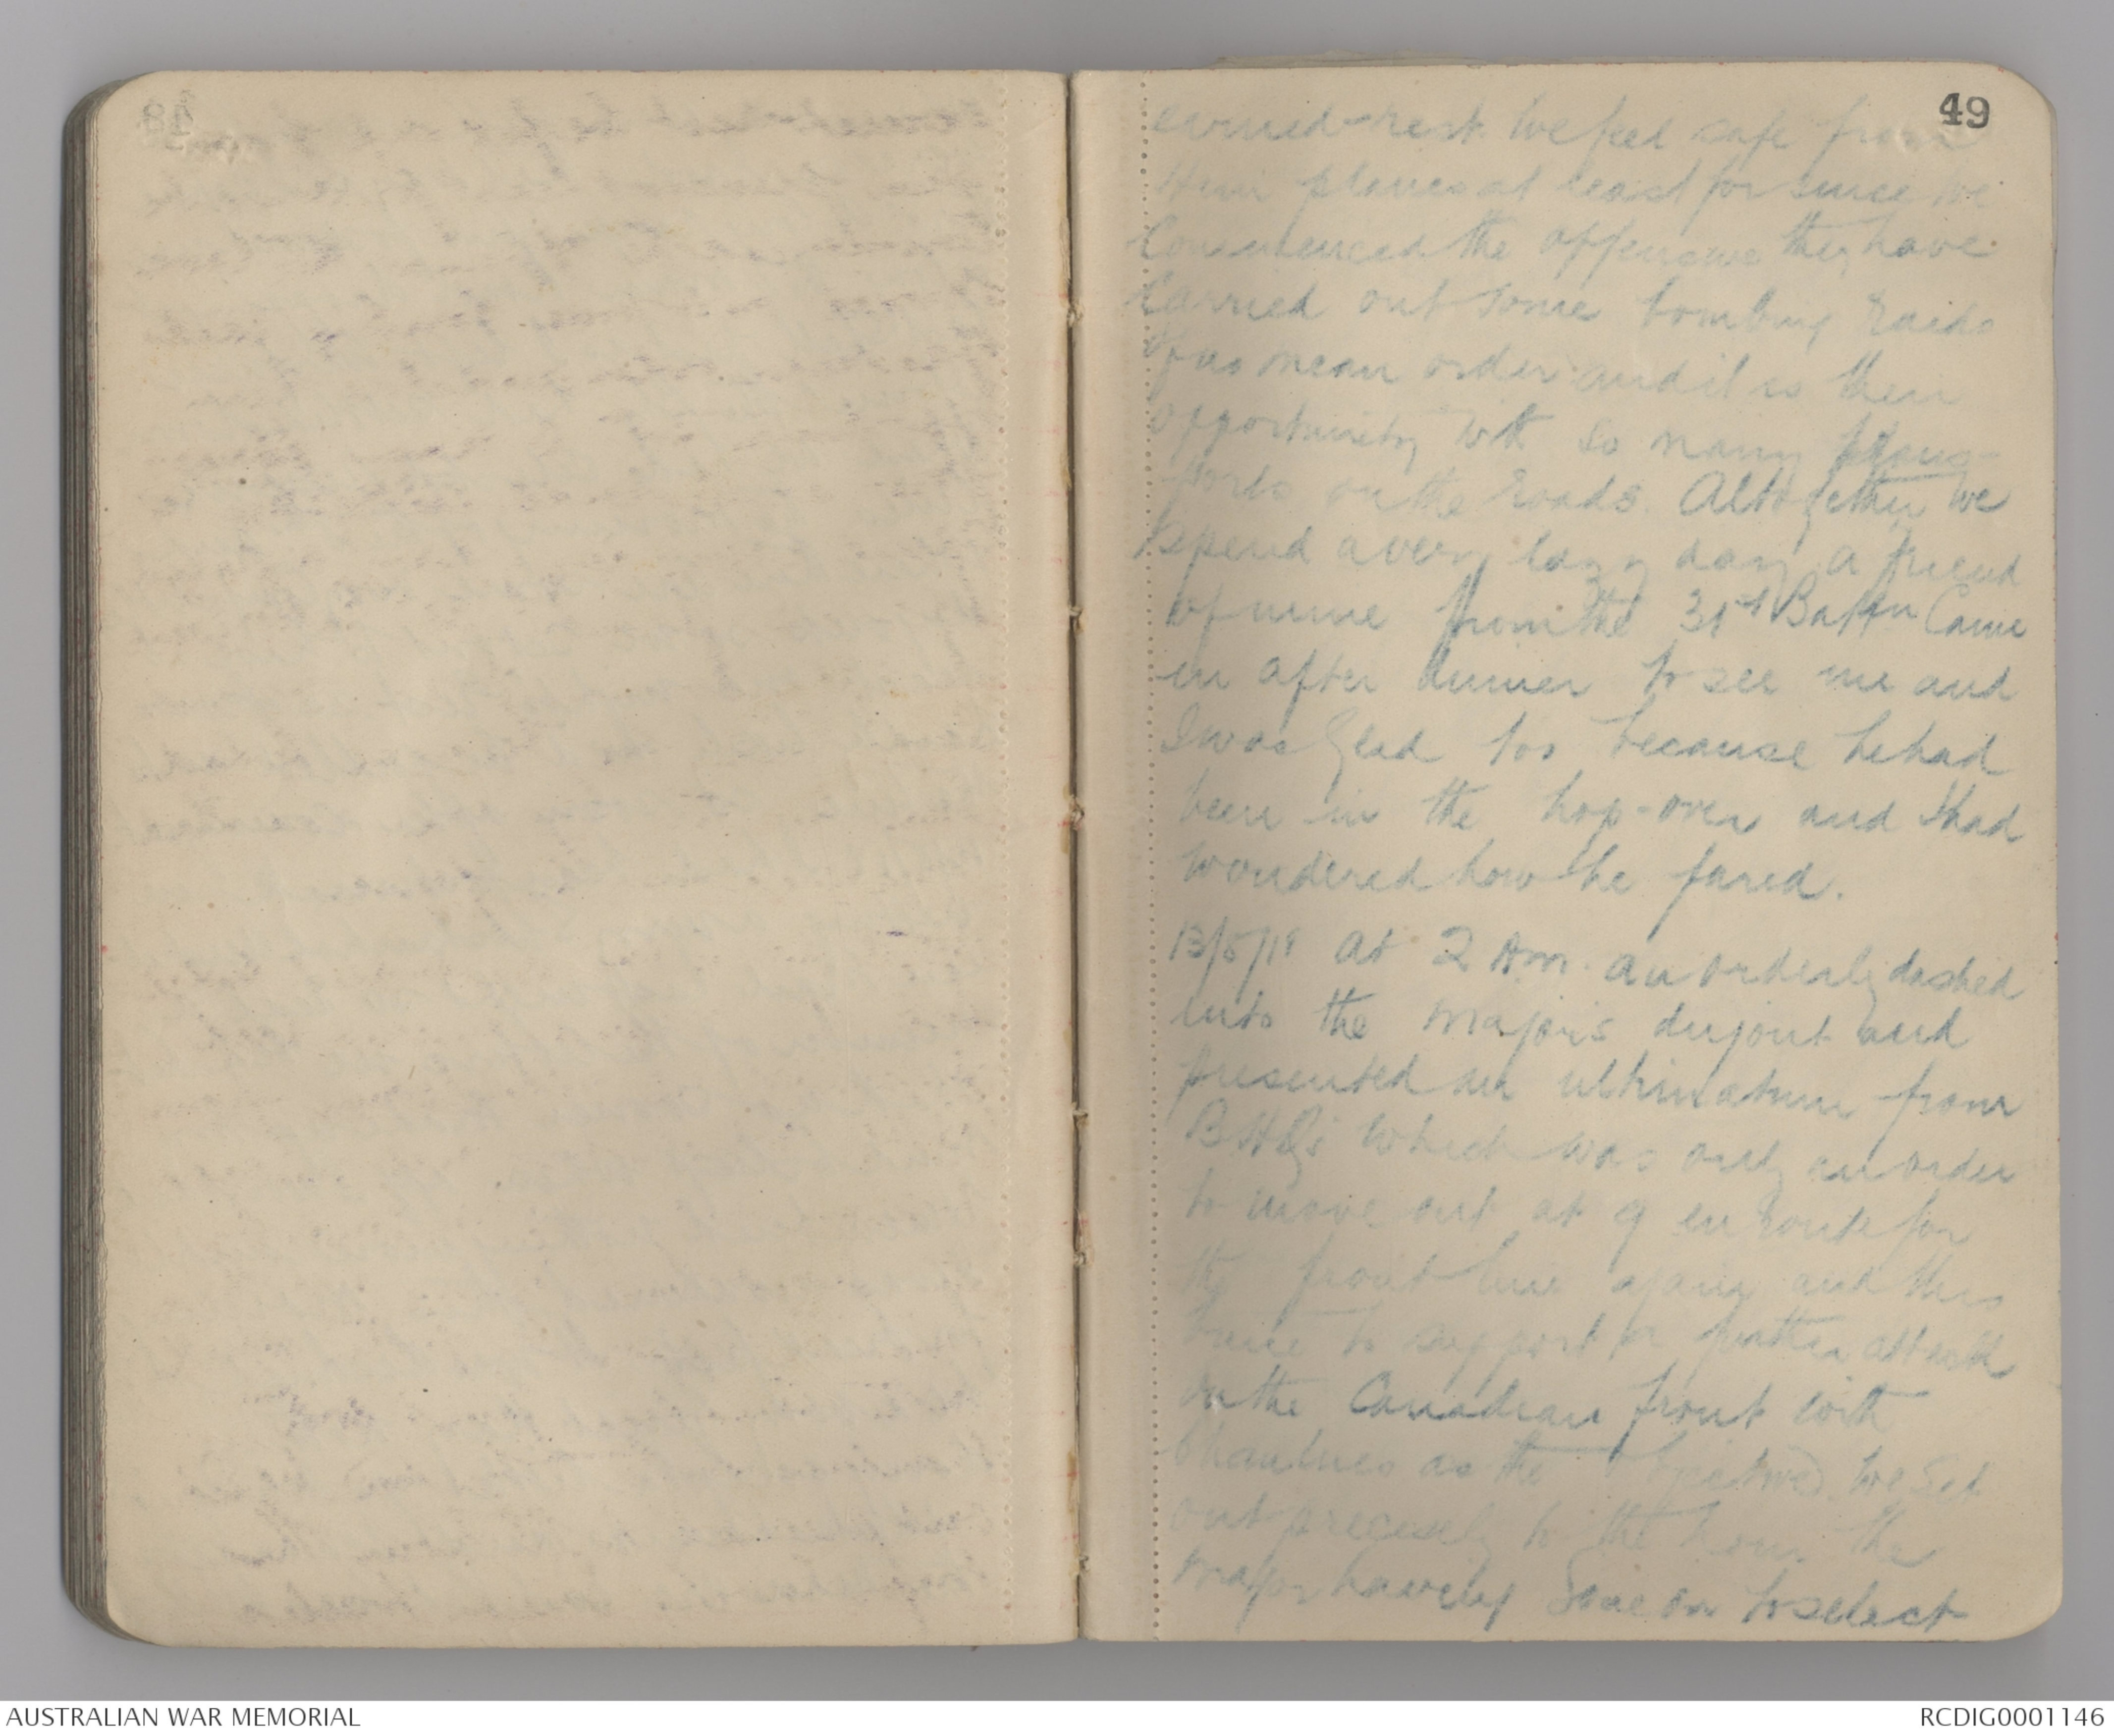 49
earned rest. We feel safe from
their planes at least for since we
Commenced the offensive they have
Carried out some bombing raids
of no mean order and it is their
opportunity with so many
ports on the roads. Altogether we
spend a very lazy day, a friend
of mine from the 31st Battn Came
in after dinner to see me and
I was glad too because he had
been in the hop-over and I had
wondered how he fared.
at 2 Am. an orderly dashed
into the Majors dugout and
presented an ultimatum from
BHQs which was only an order
to move out at 9 en route for
the front line again and this
time to support a further attack
on the Canadian front with
Chaulnes as the objective. We set
out precisely to the hour the
Major having gone on to select
AUSTRALIAN WAR MEMORIAL
RCDIG0001146